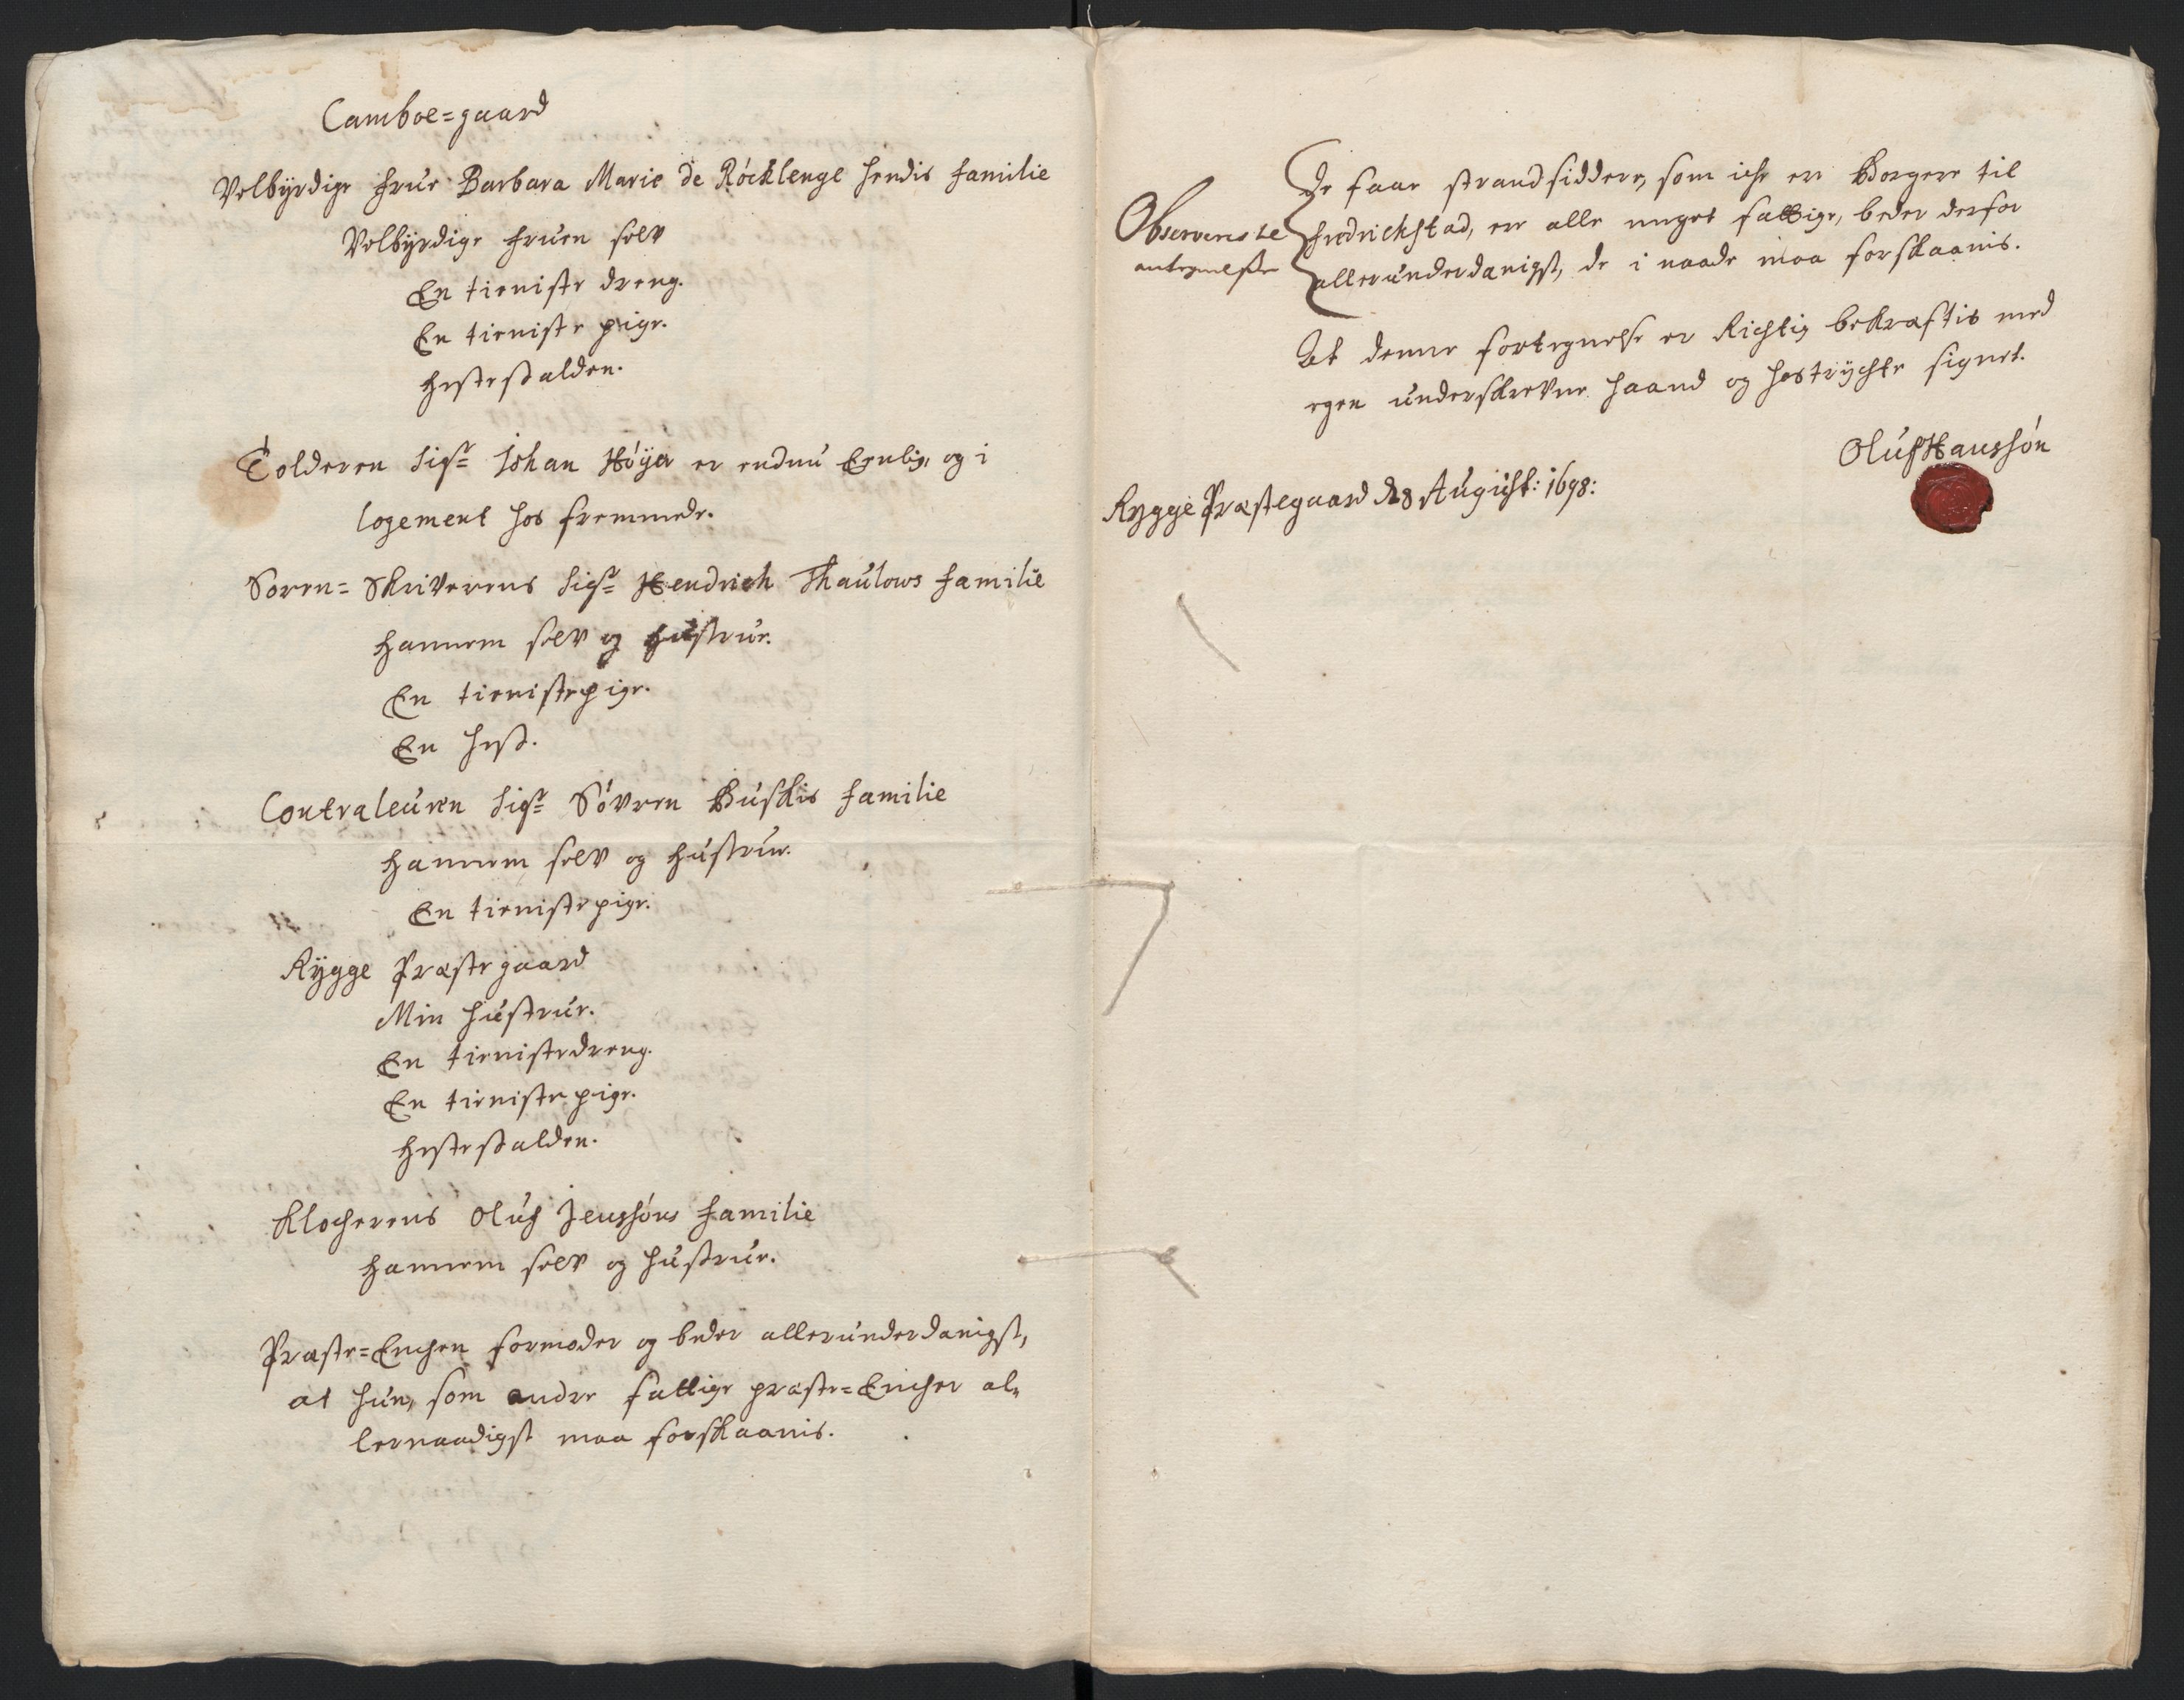 Camboe=gaard
Velbyrdige Frue Barbara Marie de Röcklenge hendis familie
Velbyrdige Fruen selv
En tieniste dreng.
En tieniste pige.
Hestestalden.
Tolderen Sigr Johan Höyer er endnu Eenlig, og i
logement hos fremmede.
Soren=Skriverens Sigr Hendrich Thaulows familie
Hannem selv og Hustrue.
En tienistepige.
En Hest.
Contraleuren Sigr Sövren Buskis familie
Hannem selv og Hustrue.
En tienistepige.
Rygge Præstegaard
Min Hustrue.
En tienistedreng.
En tienistepige.
Hestestalden.
Klocherens Oluf Jenssöns familie
Hannem selv og Hustrue.
Præste=Enchen formoder og beder allerunderdanigst,
at hun, som andre fattige præste=Encher al=
lernaadigst maa forskaanis.
De faae strandsiddere, som iche ere Borgere til
Observeriste Fredrichstad, ere alle meget fattige, beder derfor
antegnelse allerunderdanigst, de i naade maa forskaanis.
At denne fortegnelse er Richtig bekræftis med
egen underskrevne haand og hostrychte signet.
Oluf Hanssön
Rygge Præstegaard d 8 August: 1698: